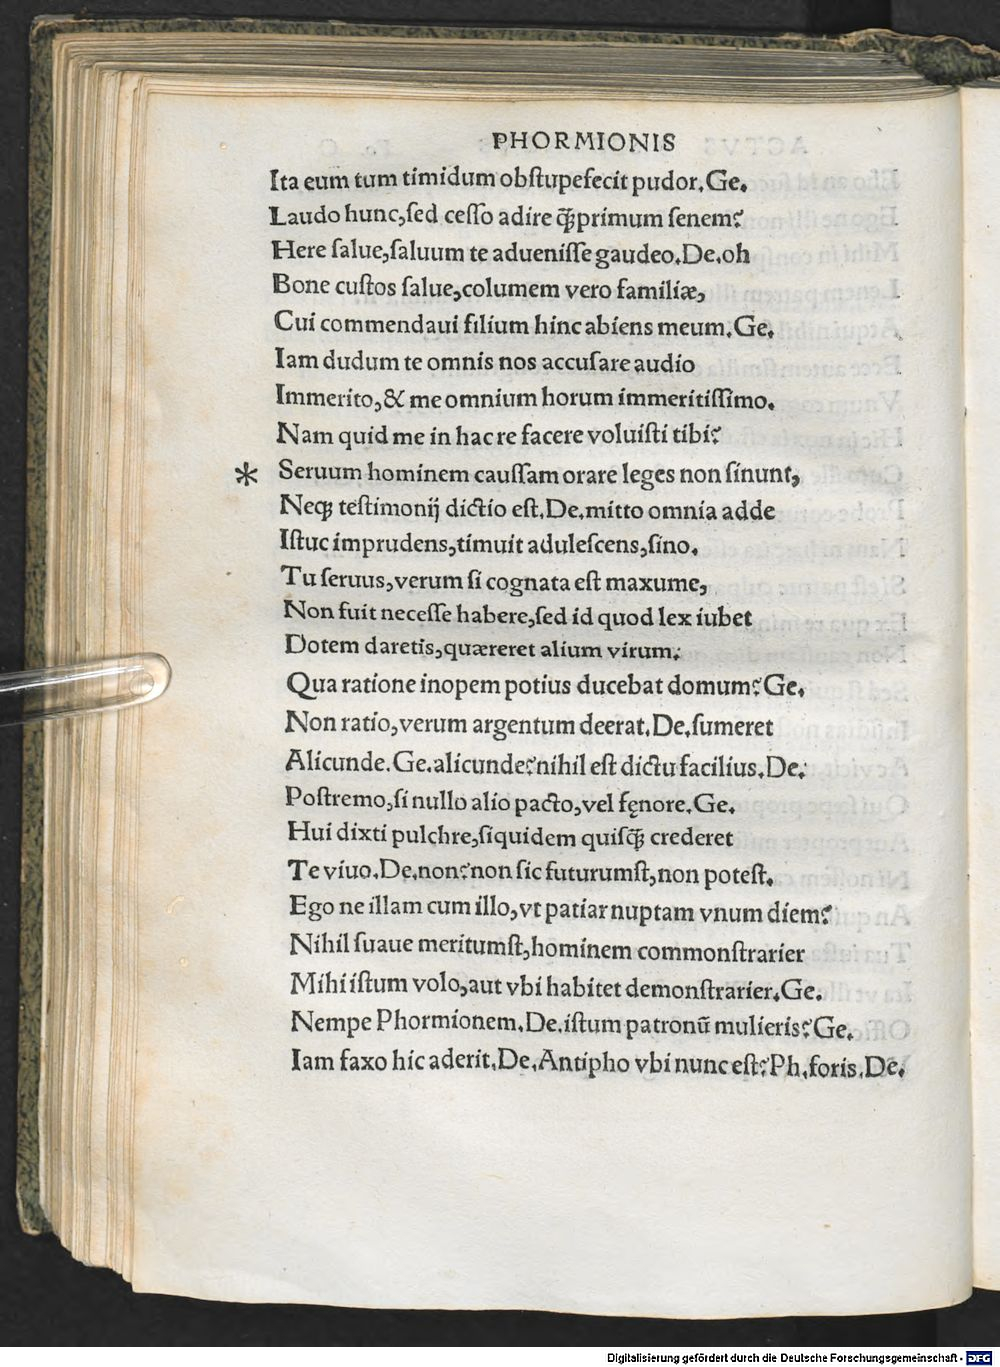 PHORMIONIS
Ita eum tum timidum obſtupefecit pudor.Ge.
Laudo hunc,ſed ceſſo adire ꝗ̃primum ſenem?
Here ſalue,ſaluum te adueniſſe gaudeo.De.oh
Bone cuſtos ſalue,columem vero familiæ,
Cui commendaui filium hinc abiens meum.Ge.
Iam dudum te omnis nos accuſare audio
Immerito,& me omnium horum immeritiſſimo.
Nam quid me in hac re facere voluiſti tibi?
* Seruum hominem cauſſam orare leges non ſinunt,
Neqꝫ teſtimonij dictio eſt.De.mitto omnia adde
Iſtuc imprudens,timuit aduleſcens,ſino.
Tu ſeruus,verum ſi cognata eſt maxume,
Non fuit neceſſe habere,ſed id quod lex iubet
Dotem daretis,quæreret alium virum:
Qua ratione inopem potius ducebat domum?Ge.
Non ratio,verum argentum deerat.De.ſumeret
Alicunde.Ge.alicunde?nihil eſt dictu facilius.De:
Poſtremo,ſi nullo alio pacto,vel fęnore.Ge.
Hui dixti pulchre,ſiquidem quiſꝗ̃ crederet
Te viuo.De.non?non ſic futurumſt,non poteſt.
Ego ne illam cum illo,vt patiar nuptam vnum diem?
Nihil ſuaue meritumſt,hominem commonſtrarier
Mihi iſtum volo,aut vbi habitet demonſtrarier.Ge.
Nempe Phormionem.De.iſtum patronũ mulieris?Ge.
Iam faxo hic aderit.De.Antipho vbi nunc eſt?Ph.foris.De.
Digitalisierung gefördert durch die Deutsche Forschungsgemeinschaft - DFG